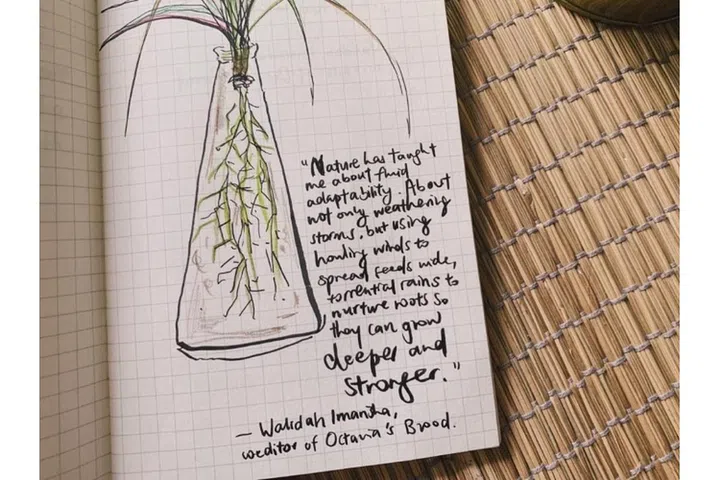 "Nature has taught
me about fluid
adaptability. About
not only weathering
storms, but using
howling winds to
spread seeds wide,
torrential rains to
nurture roots so
they can grow
deeper and
stronger."
— Walidah Imarisha,
coeditor of Octavia's Brood.